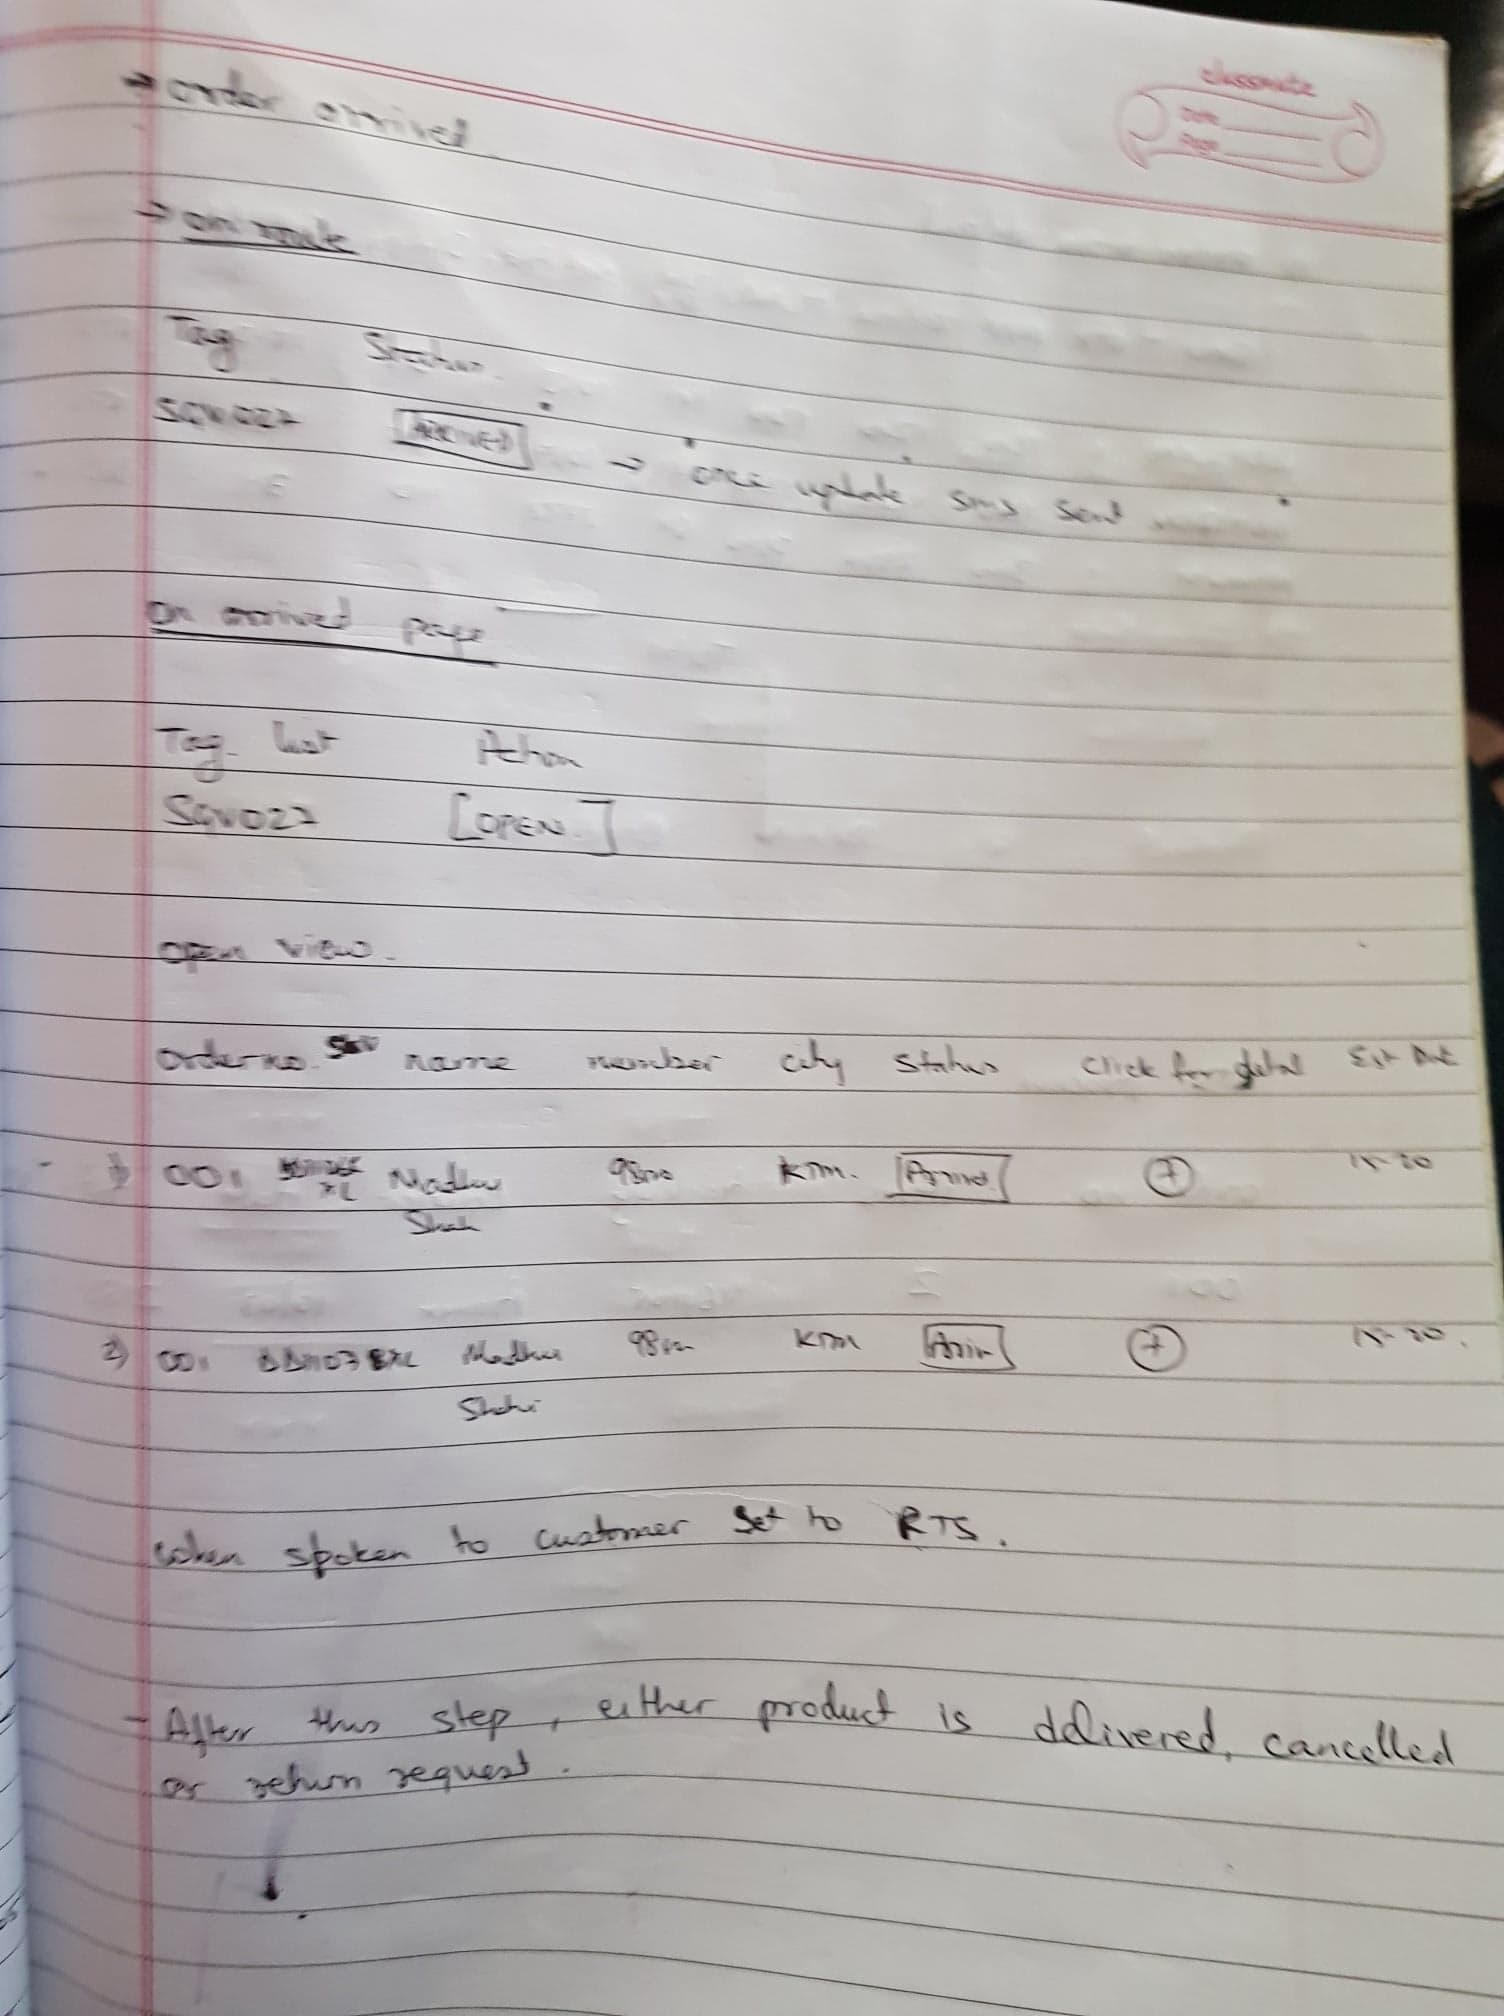 classmate
Date
Page
→ order arrived
→ on route
Tag Status
SGV022 [ARRIVED] → once update sms sent
on arrived page
Tag list Action
SGV022 [OPEN]
open view.
order no. name number city status click for detail Est Dat
1) 001 XL Madhu 98 KTM. [Arrived] + 15-20
Shah
2) 001 Madhu 98 KTM + 15-20.
when spoken to customer set to RTS.
- After this step, either product is delivered, cancelled
or return request.